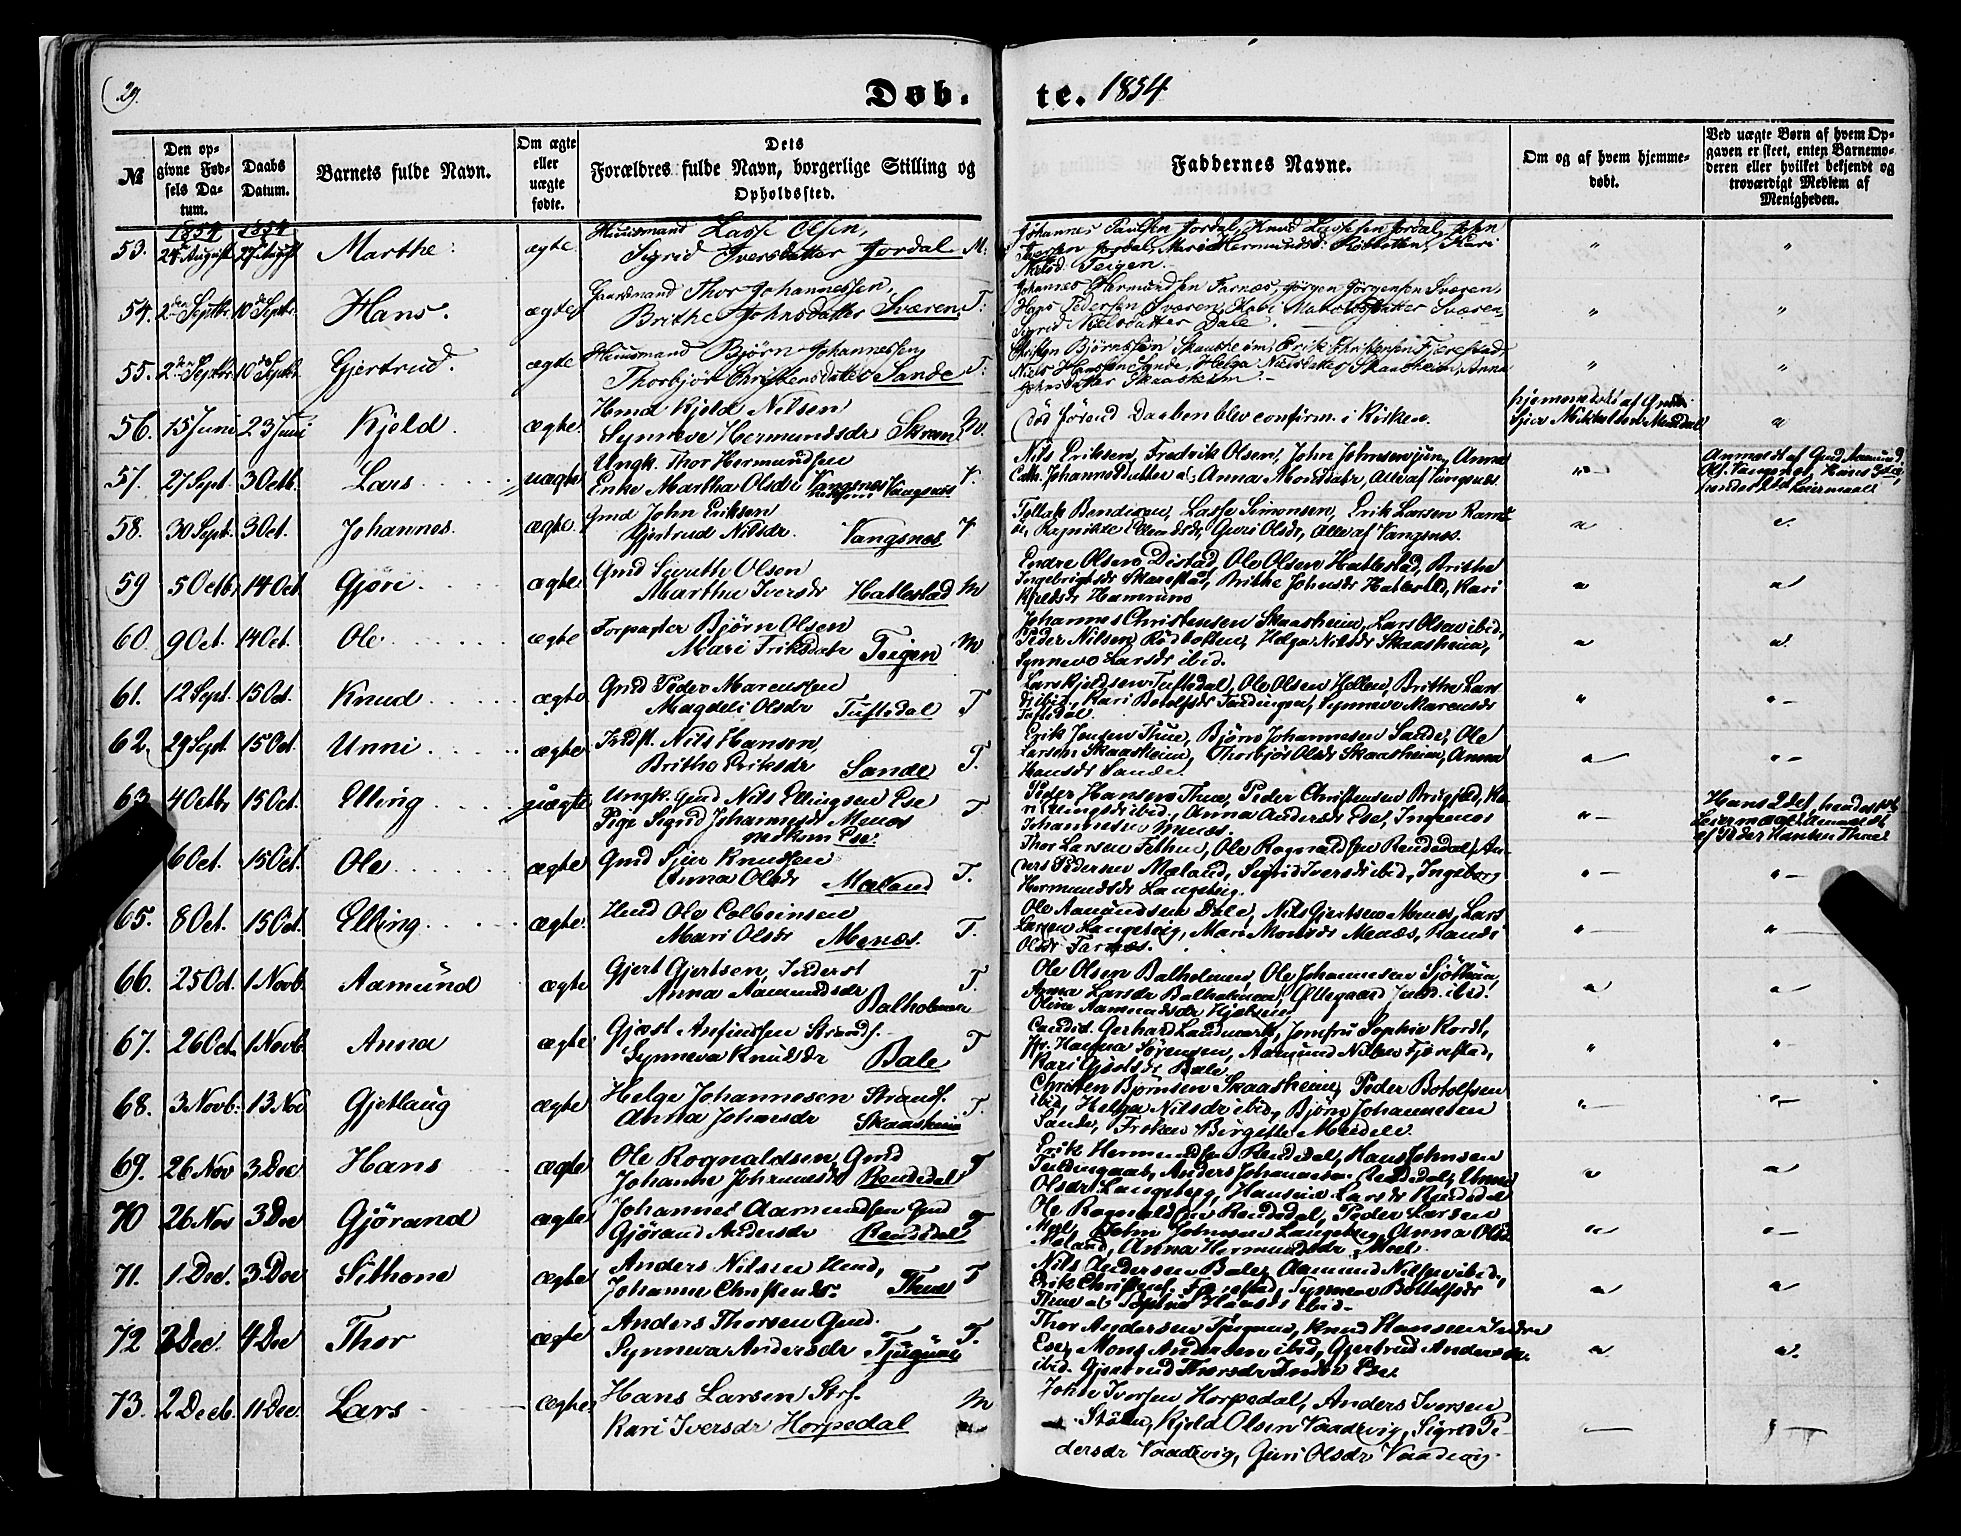 29.
Døb. te. 1854
№
Den opgivne Fødsels Datum.
Daabs Datum.
Barnets fulde Navn.
Om ægte eller uægte fødte.
Dets Forældres fulde Navn, borgerlige Stilling og Opholdssted.
Faddernes Navne.
Om og af hvem hjemmedøbt.
Ved uægte Børn af hvem Opgaven er skeet, enten Barnemoderen eller hvilket bekjendt og troværdigt Medlem af Menigheden.
1854 1854
53. 24 August 27 August Marthe. ægte Huusmand Lasse Olsen,
Sigrid Iversdatter Jordal M.
Johannes Paulsen Jordal, Knud Lassesen Jordal, John
Iversen Jordal, Mari Hermundsd:
Nielsd. Teigen.
54. 2den Septbr 10de Septbr Hans. ægte Gaardmand Thor Johannessen,
Brithe Johnsdatter Sværen T.
Johannes Hermundsen Farnæs, Jørgen Jørgensen Sværen,
Hans Pedersen Sværen, Kari Datter Sværen,
Sigrid Nielsdatter Dale.
55. 2den Septbr 10de Septbr Gjertrud. ægte Huusmand Bjørn Johannessen,
Thorbjør Christensdatter Sande T.
Christen Bjørnssen Skaasheim, Erik Christensen Fjærestad
Niels Hanssen Sande, Helga Nielsdatter Skaasheim, Anna
Johnsdatter Skaasheim.
56. 15 Juni 23 Juni Kjeld ægte Hmd Kjeld Nilsen
Synneve Hermundsdr M.
død førend Daaben blev confirm. i Kirken.
hjemmedøbt af
Mikkelsen Mundal
57. 27 Sept. 3 Octb. Lars uægte Ungk. Thor Hermundsen
Enke Martha Olsdr Vangsnes V.
Nils Eriksen, Fredrik Olsen, John Johnsen jun, Anna
Cath. Johannesdatter, Anna Monsdatr, Alle af Vangsnes
Anmeldt af Gmd Aamund
Ols. Vangsnes,
Leiermaal
58. 30 Sept. 3 Oct. Johannes. ægte Gmd John Eriksen
Gjertrud Nilsdr. Vangsnes V.
Tollak Bendixen, Lasse Simonsen, Erik Larsen
Ragnilde Guri Olsdr, Alle af Vangsnes.
59 5 Octb. 14 Oct. Gjøri ægte Gmd Siurth Olsen
Martha Iversdr Hatlestad M
Endre Olsen Distad, Ole Olsen Hatlestad, Brithe
Ingebrigtsdr Brithe Johnsdr Hatlestad, Kari
Kjeldsdr Hamrum
60. 9 Oct. 14 Oct. Ole ægte Forpagter Bjørn Olsen
Mari Eriksdatr Teigen M
Johannes Christensen Skaasheim, Lars Olsen ibid,
Peder Nilsen Rødbotten, Helga Nilsdr Skaasheim,
Synneve Larsdr ibid.
61. 12 Sept. 15 Oct. Knud ægte Gmd Peder Marcussen
Magdeli Olsdr Tuftedal T
Lars Kjeldsen Tuftedal, Ole Olsen Hellen, Brithe Lars
dr ibid, Kari Botolfsdr Synneve Marcusdr
Tuftedal.
62. 29 Sept. 15 Oct. Unni ægte Inds. Nils Hansen,
Brithe Eriksdr Sande T.
Erik Jensen Thue, Bjørn Johannesen Sande, Ole
Larsen Skaasheim, Thorbjør Olsdr Skaasheim, Anna
Hansdr Sande.
63. 4 Octb. 15 Oct. Elling uægte Ungk. Gmd Nils Ellingsen Ese
Pige Sigrid Johannesdr Menes T
Ese.
Peder Hansen Thue, Peder Christensen
Ellingsdr ibid, Anna Andersdr Ese,
Johannesen Menes.
Hans 2det, hendes
Leiermaal Anmeldt
af Peder Hansen Thue
6 Oct. 15 Oct. Ole ægte Gmd Knudsen
Anna Olsdr Mæland T.
Thor Larsen Ole Rognaldsen Rendedal, An-
ders Pedersen Mæland, Sigrid Iversdr ibid, Ingeborg
Hermundsdr
65. 8 Oct. 15 Oct. Elling ægte. Hmd Ole Colbeinsen
Mari Olsdr Menæs. T.
Ole Aamundsen Dale, Nils Gjertsen Menæs, Lars
Larsen Mari Monsdr Menæs, Randi
Olsdr Farnæs.
66. 25 Oct. 1 Novb. Aamund ægte Gjert Gjertsen, Inderst
Anna Aamundsdr T.
Balholmen
Ole Olsen Balholmen, Ole Johannesen
Anna Larsdr Balholmen, ibid.
Oline Aamundsdr
67. 26 Oct. 1 Novb. Anna ægte Gjøst Anfindsen Strands.
Synneva Knudsdr Bale T
Candid. Gerhard Landmark, Jomfru Sophie Kordt,
Jfr. Hanna Sørensen, Aamund Nilsen Fjærestad,
Kari Gjøstsdr Bale
68. 3 Novb. 13 Nov Gjetlaug ægte Helge Johannesen Strands.
Anna Johansdr Skaasheim T.
Christen Bjørnsen Skaasheim, Peder Botolfsen
ibid, Helga Nilsdr ibid, Bjørn Johannesen
Sande, Frøken Birgitte
69. 26 Nov 3 Dec Hans ægte Ole Rognaldsen, Gmd
Johanne Johannesdr Rendedal T
Erik Hermundsen Rendedal, Hans Johnsen
Anders Johannesen Rendedal,
Olsdr Larsdr Rendedal
70 26 Nov 3 Dec Gjørand ægte Johannes Aamundsen Gmd
Gjørand Andersdr Rendedal T
Ole Rognaldsen Rendedal, Peder Larsen
John Johnsen Anna Olsd.
Mæland, Anna Hermundsdr
71. 1 Dec. 3 Dec Sithone ægte Anders Nilsen Hmd,
Johanne Christensdr Thue T
Nils Andersen Bale, Aamund Nilsen ibid,
Erik Christens. Fjærestad, Synneve Botolfsdr
Thue Hansdr ibid.
72 2 Dec. 4 Dec Thor ægte Anders Thorsen Gmd.
Synneva Andersdr Tjugum T.
Thor Andersen Tjugum, Knud Hansen Indre
Ese, Mons Andersen ibid, Gjertrud Andersdr
ibid. Gjertrud Thorsdr Indre Ese
73. 2 Decb. 11 Dec. Lars ægte Hans Larsen Strs.
Kari Iversdr Horpedal M
John Iversen Horpedal, Anders Iversen
Stølen, Kjeld Olsen Vaadevig, Sigrid Pe-
dersdr Vaadevig, Guri Olsdr Vaadevig